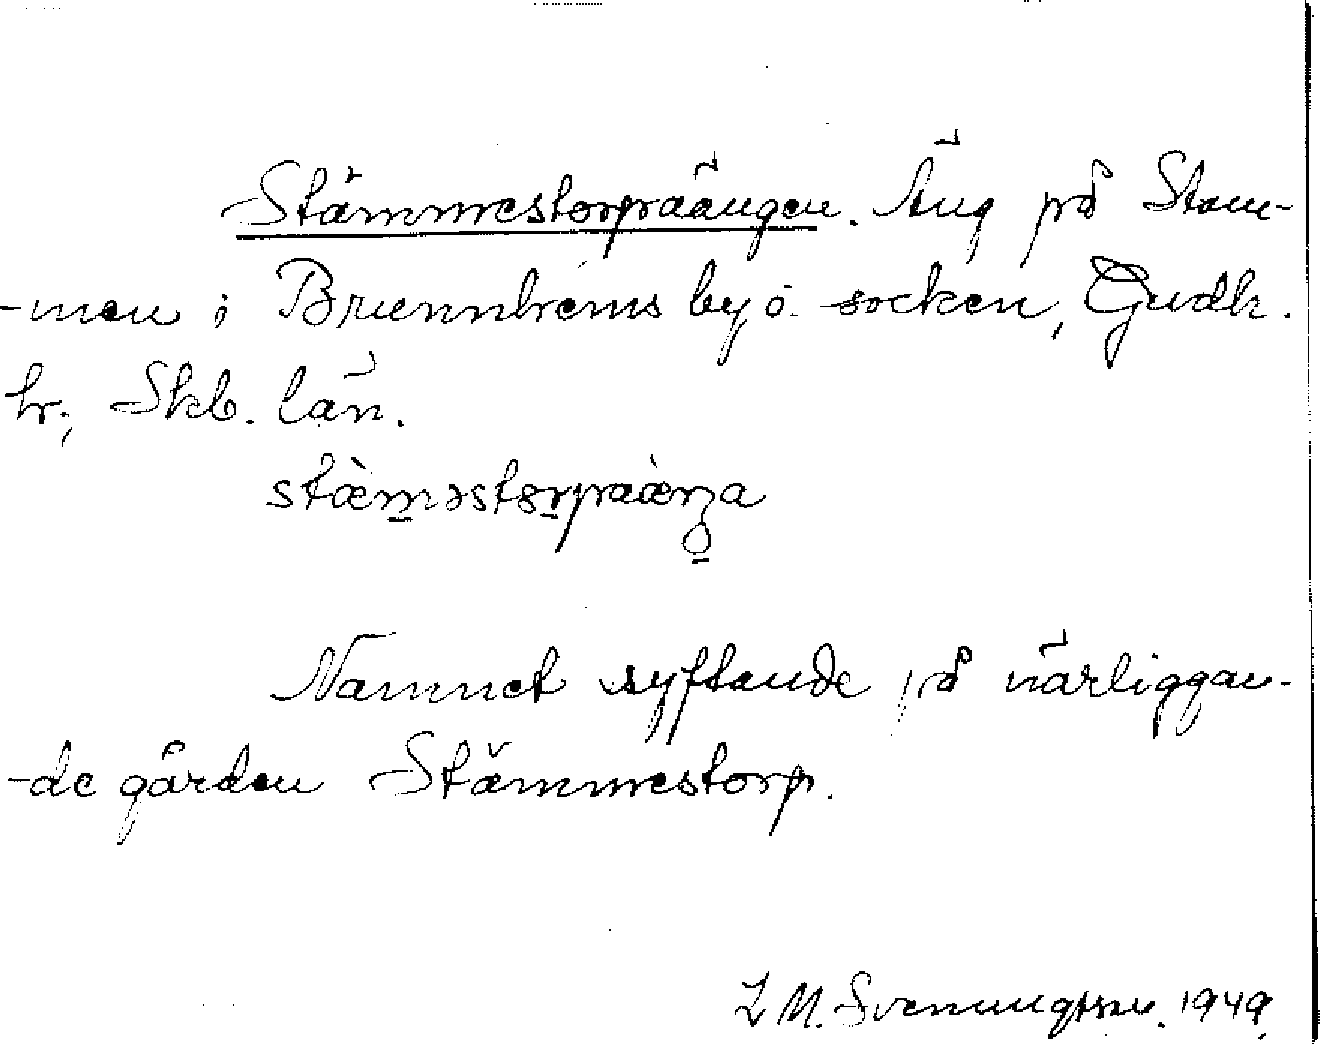 Stämmestorpaängen. Äng på Stom-
-men i Brunnhems by o. socken, Gudh.
hr., Skb. län.
stæ̀m̲əstorpaæ̀ŋa
Namnet syftande på närliggan-
-de gården Stämmestorp.
L M. Svenungsson. 1949.